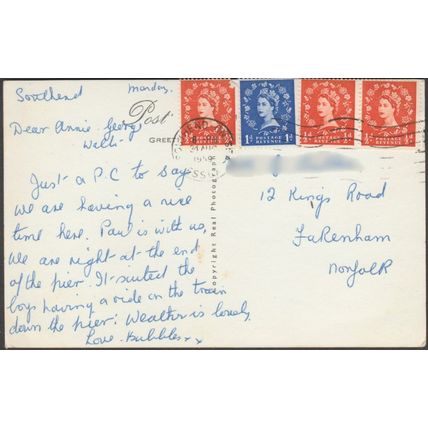 Southend Monday.
Post
GREET
Dear Annie. George
Walt.
Just a P C to say
we are having a nice
time here. Paul is with us,
we are right at the end
of the pier. It suited the
boys having a ride on the train
down the pier. Weather is lovely
Love. Bubbles x x
Copyright Real Photograph
½d ½d
1d POSTAGE REVENUE 1d
½d POSTAGE REVENUE ½d
½d POSTAGE REVENUE ½d
12 Kings Road
Fakenham
Norfolk